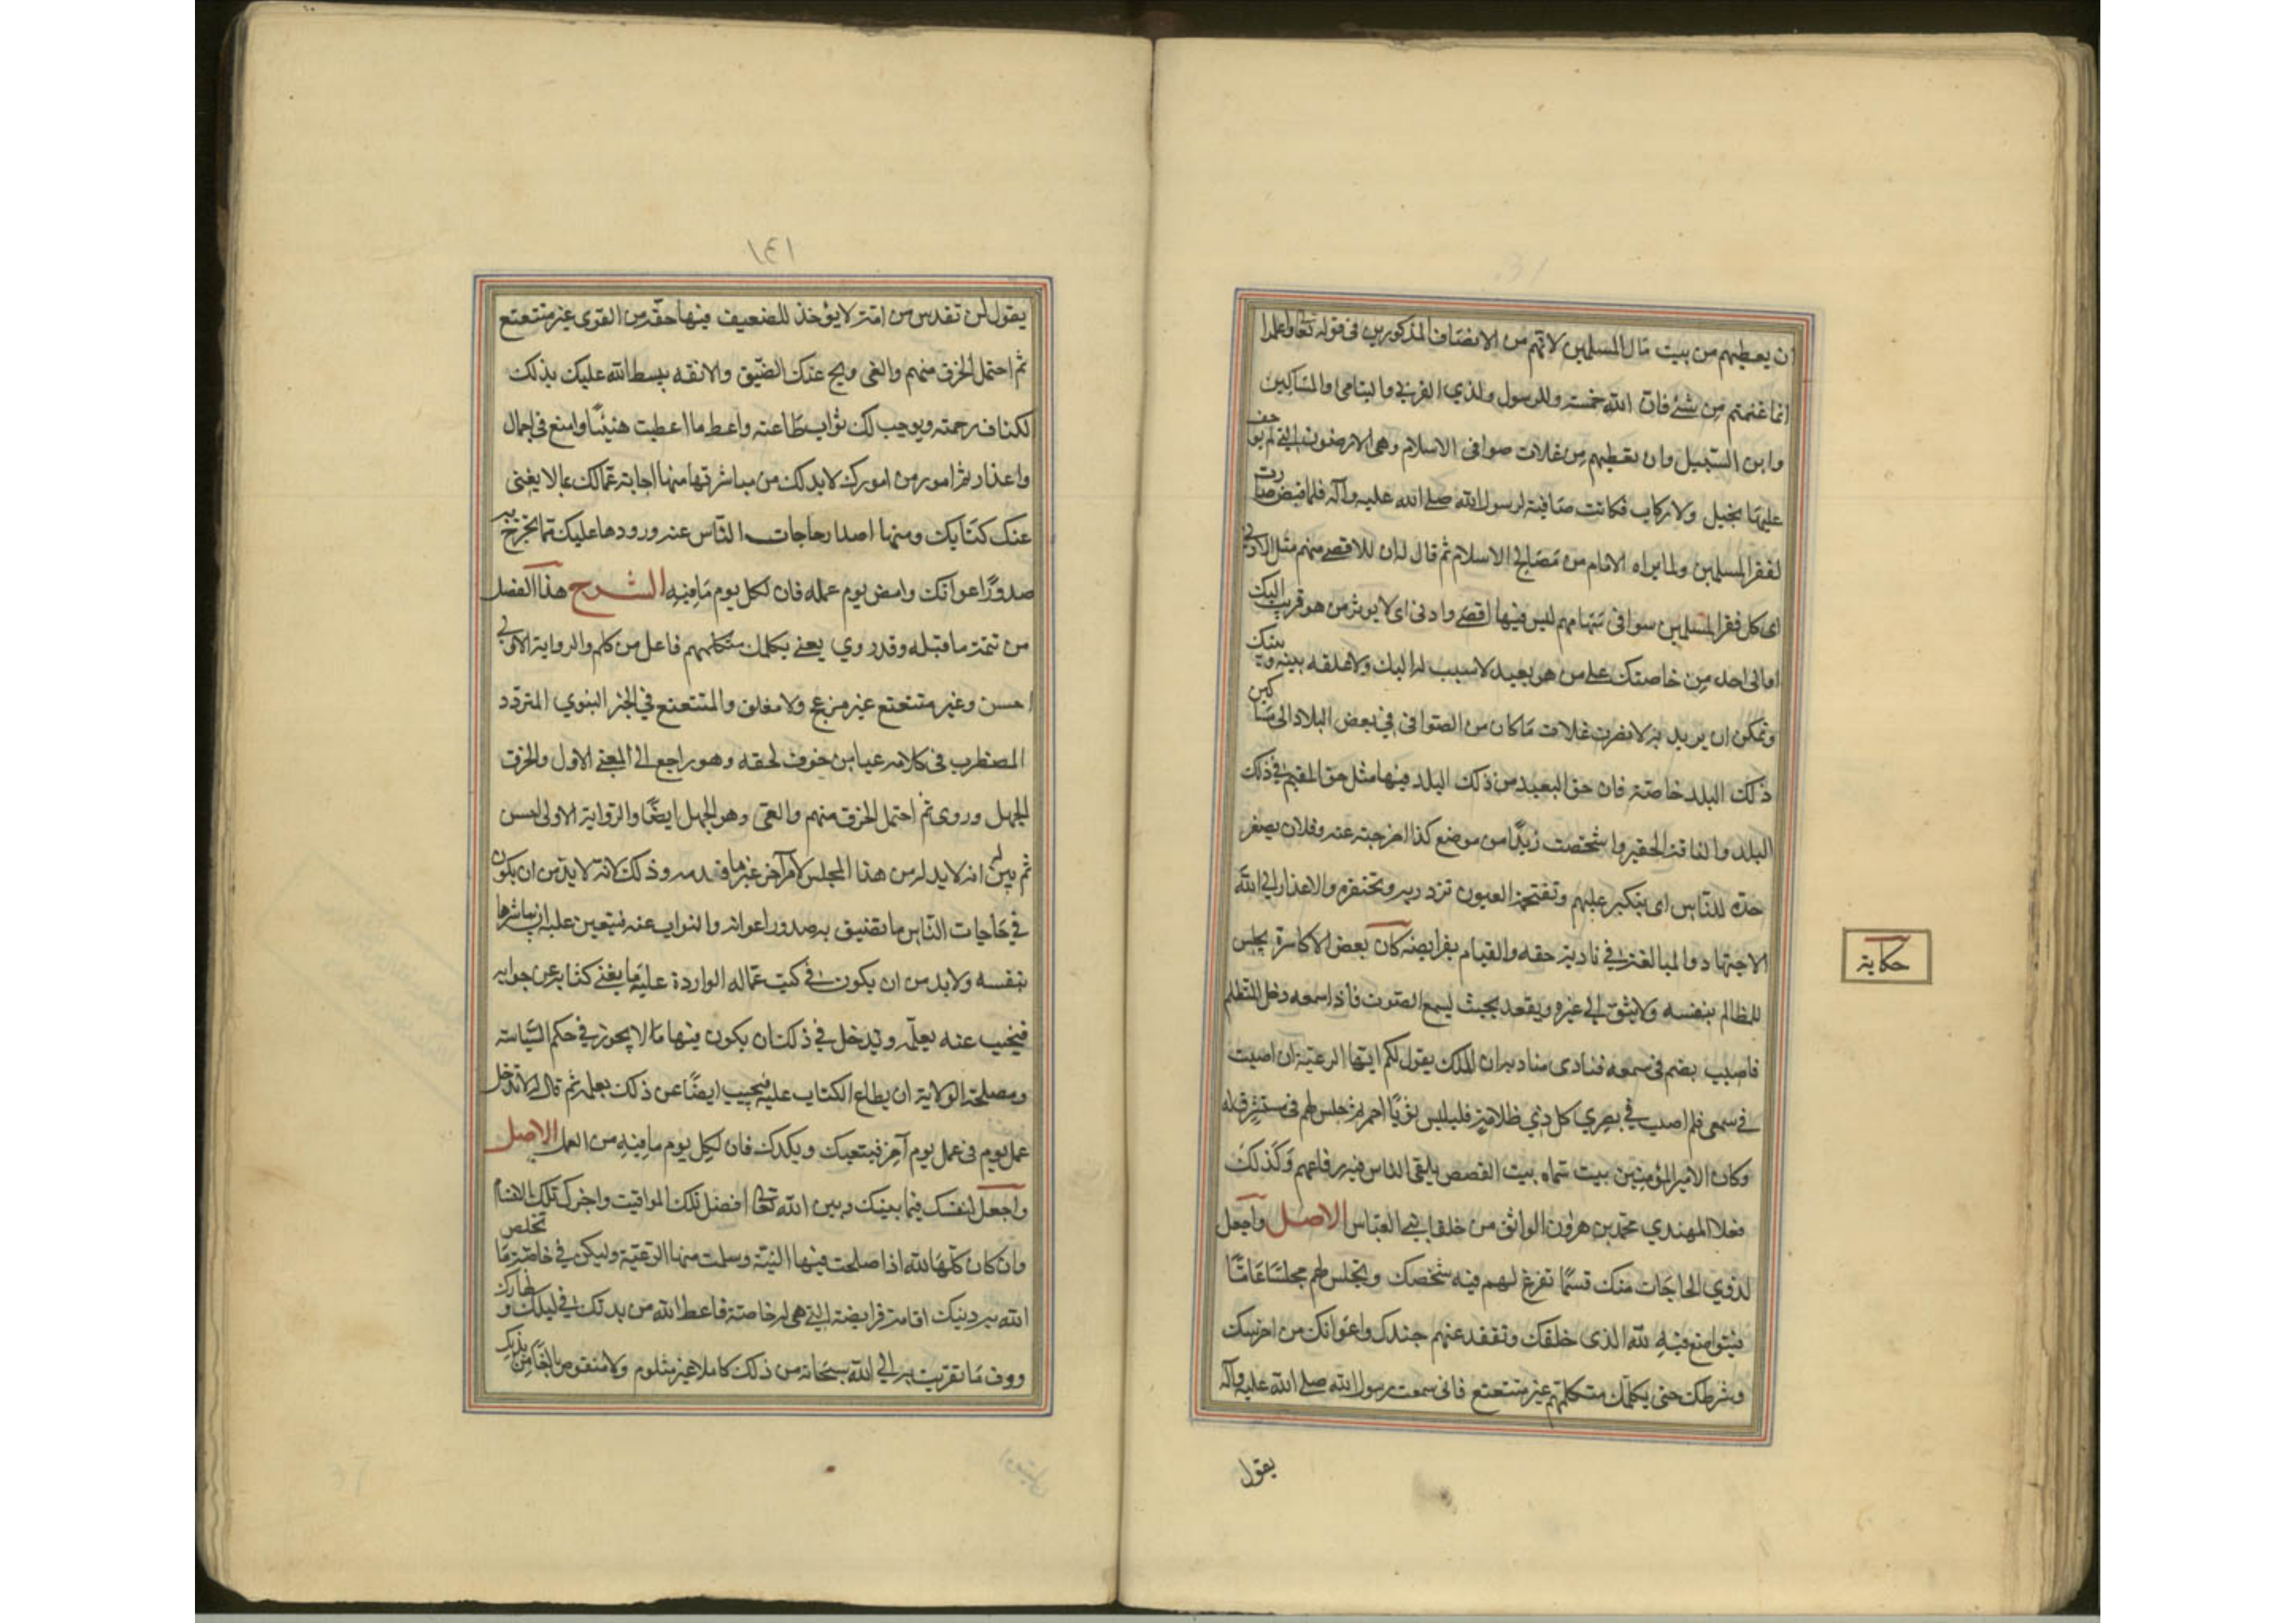 ان يعطيهم من بيت مال المسلمين لانهم من الاصناف المذكورين فى قوله تعالى واعلموا
انما غنمتم من شئ فان الله خمسه وللرسول ولذي القربى واليتامى والمساكين
وابن السبيل وان يعطيهم من غلات صوافى الاسلام وهى الارضون التى لم يوجف
عليها بخيل ولا ركاب فكانت صافية لرسول الله صلى الله عليه وآله فلما قبض صارت
لفقرا المسلمين ولما يراه الامام من مصالح الاسلام ثم قال له ان للاقصى منهم مثل الذى للادنى
اى كل فقرا المسلمين سوا فى سهامهم ليس فيها اقصى وادنى اى لا يوثر من هو قريب اليك
او الى احد من خاصتك على من هو بعيد لا سبب له اليك ولا علقه بينه وبينك
ويمكن ان يريد به لا يصرف غلات ما كان من الصوافى فى بعض البلاد الى مساكين
ذلك البلد خاصة فان حق البعيد من ذلك البلد فيها مثل حق المقيم فى ذلك
البلد والتافه الحقير واشخصت زيدا من موضع كذا اخرجته عنه وفلان يصعر
خده للناس اى يتكبر عليهم وتقتحمه العيون تزدريه وتحتقره والاعذار الى الله
الاجتهاد والمبالغة فى تادية حقه والقيام بفرايضه كان بعض الاكاسرة يجلس
للمظالم بنفسه ولا يثق الى غيره ويقعد بحيث يسمع الصوت فاذا سمعه دخل المتظلم
فاصيب بصمم فى سمعه فنادى مناديه ان الملك يقول لكم ايتها الرعية ان اصبت
فى سمعى فلم اصب فى بصري كل ذي ظلامة فليلبس ثوبا احمر ثم جلس لهم فى مستشرف له
وكان لامير المؤمنين بيت سماه بيت القصص يلقى الناس فيه رقاعهم وكذلك
فعل المهتدي محمد بن هرون الواثق من خلفا بنى العباس الاصل واجعل
لذوي الحاجات منك قسما تفرغ لهم فيه شخصك وتجلس لهم مجلسا عاما
فتتواضع فيه لله الذى خلقك وتقعد عنهم جندك واعوانك من احراسك
وشرطك حتى يكلمك متكلمهم غير متتعتع فانى سمعت رسول الله صلى الله عليه وآله
يقول
حكاية
١٤١
يقول لن تقدس من امة لا يؤخذ للضعيف فيها حقه من القوى غير متتعتع
ثم احتمل الخرق منهم والعى ونح عنك الضيق والانفه يبسط الله عليك بذلك
اكناف رحمته ويوجب لك ثواب طاعته واعط ما اعطيت هنيئا وامنع فى اجمال
واعذار ثم امور من امورك لابد لك من مباشرتها منها اجابة عمالك عما لا يغنى
عنك كتابك ومنها اصدار حاجات الناس عند ورودها عليك مما تحرج به
صدور اعوانك وامض يوم عمله فان لكل يوم ما فيه الشرح هذا الفصل
من تتمة ما قبله وقد روي يعنى يكلمك متكلمهم فاعل من كلم والرواية الاولى
احسن وغير متتعتع غير مزعج ولا مقلق والمتتعتع فى الخبر النبوي المتردد
المضطرب فى كلامه عيا من خوف لحقه وهو راجع الى المعنى الاول والخرق
الجهل وروى ثم احتمل الخرق منهم والعى وهو الجهل ايضا والرواية الاولى احسن
ثم بين له انه لابد له من هذا المجلس لامر آخر غير ما قدمه وذلك لانه لابد من ان يكون
فى حاجات الناس ما تضيق به صدور اعوانه والنواب عنه فيتعين عليه ان يباشرها
بنفسه ولابد من ان يكون فى كتب عماله الواردة عليه ما يغنى كتابه عن جوابه
فيجيب عنه بعلمه ويدخل فى ذلك ان يكون فيها ما لا يجوز فى حكم السياسة
ومصلحة الولاية ان يطلع الكتاب عليه فيجيب ايضا عن ذلك بعلمه ثم قال له لا تدخل
عمل يوم فى عمل يوم آخر فيتعبك ويكدك فان لكل يوم ما فيه من العمل الاصل
واجعل لنفسك فيما بينك وبين الله تعالى افضل تلك المواقيت واجزل تلك الاقسام
وان كان كلها لله اذا صلحت فيها النية وسلمت منها الرعية وليكن فى خاصة ما تخلص
الله به دينك اقامة فرايضه التى هى له خاصة فاعط الله من بدنك فى ليلك ونهارك
ووف ما تقربت به الى الله سبحانه من ذلك كاملا غير مثلوم ولا منقوص بالغا من بدنك